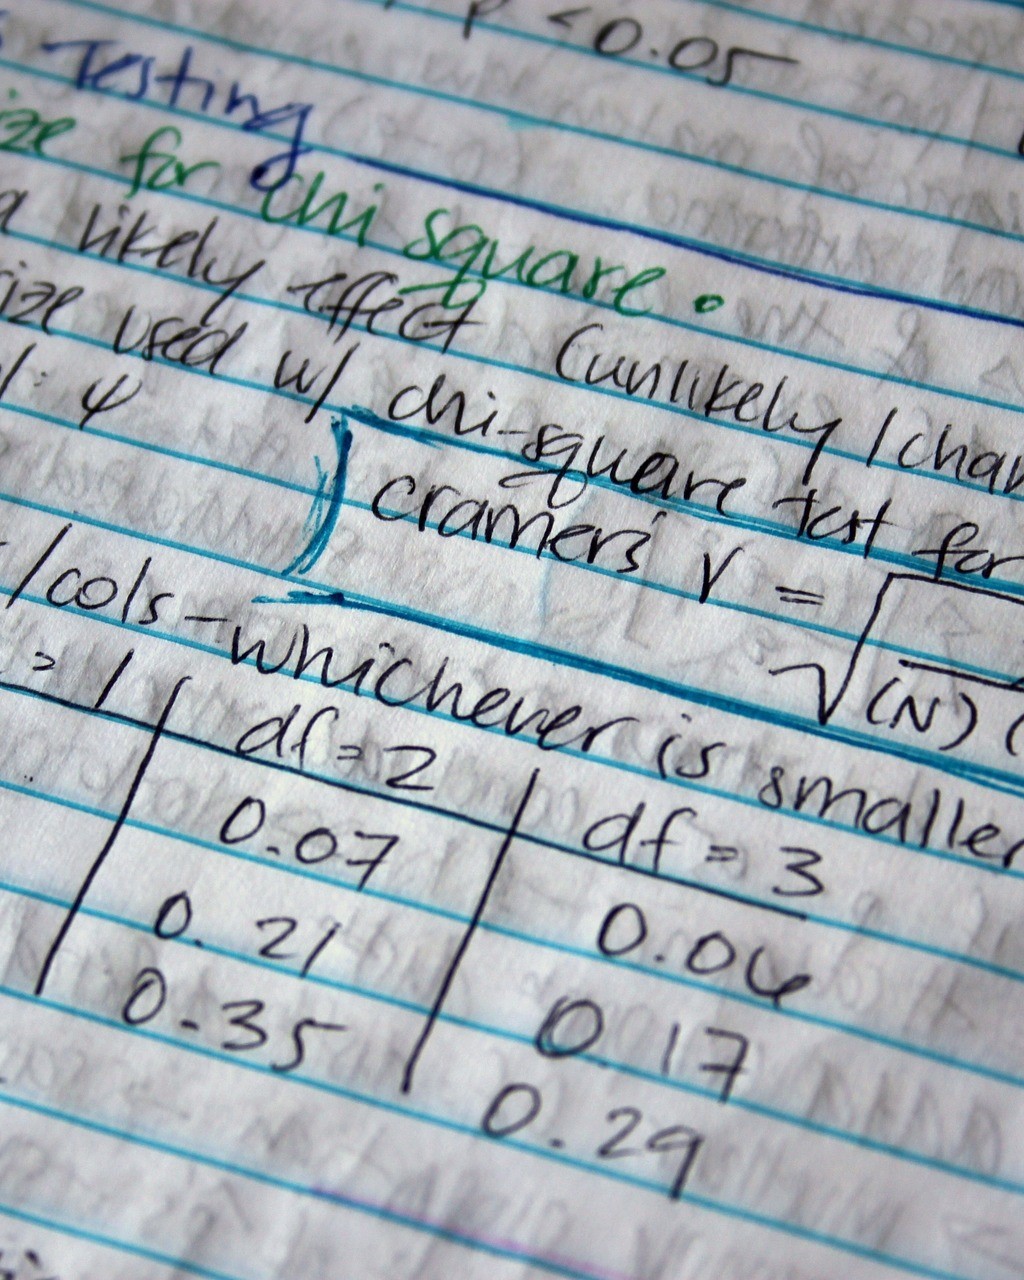 p < 0.05
Testing
ize for chi square.
a likely effect (unlikely / chan
size used w/ chi-square test for
: 4
cramers' V = √ (N) (
/cols - whichever is smaller
= 1 | df = 2 | df = 3
0.07 0.06
0.21 0.17
0.35 0.29